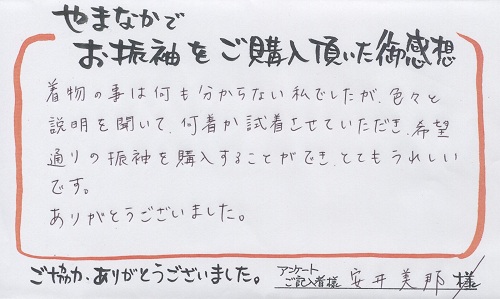 やまなかで
お振袖をご購入頂いた御感想
着物の事は何も分からない私でしたが、色々と
説明を聞いて、何着か試着させていただき、希望
通りの振袖を購入することができ、とてもうれしい
です。
ありがとうございました。
ご協力、ありがとうございました。
アンケート
ご記入者様 安井美那 様